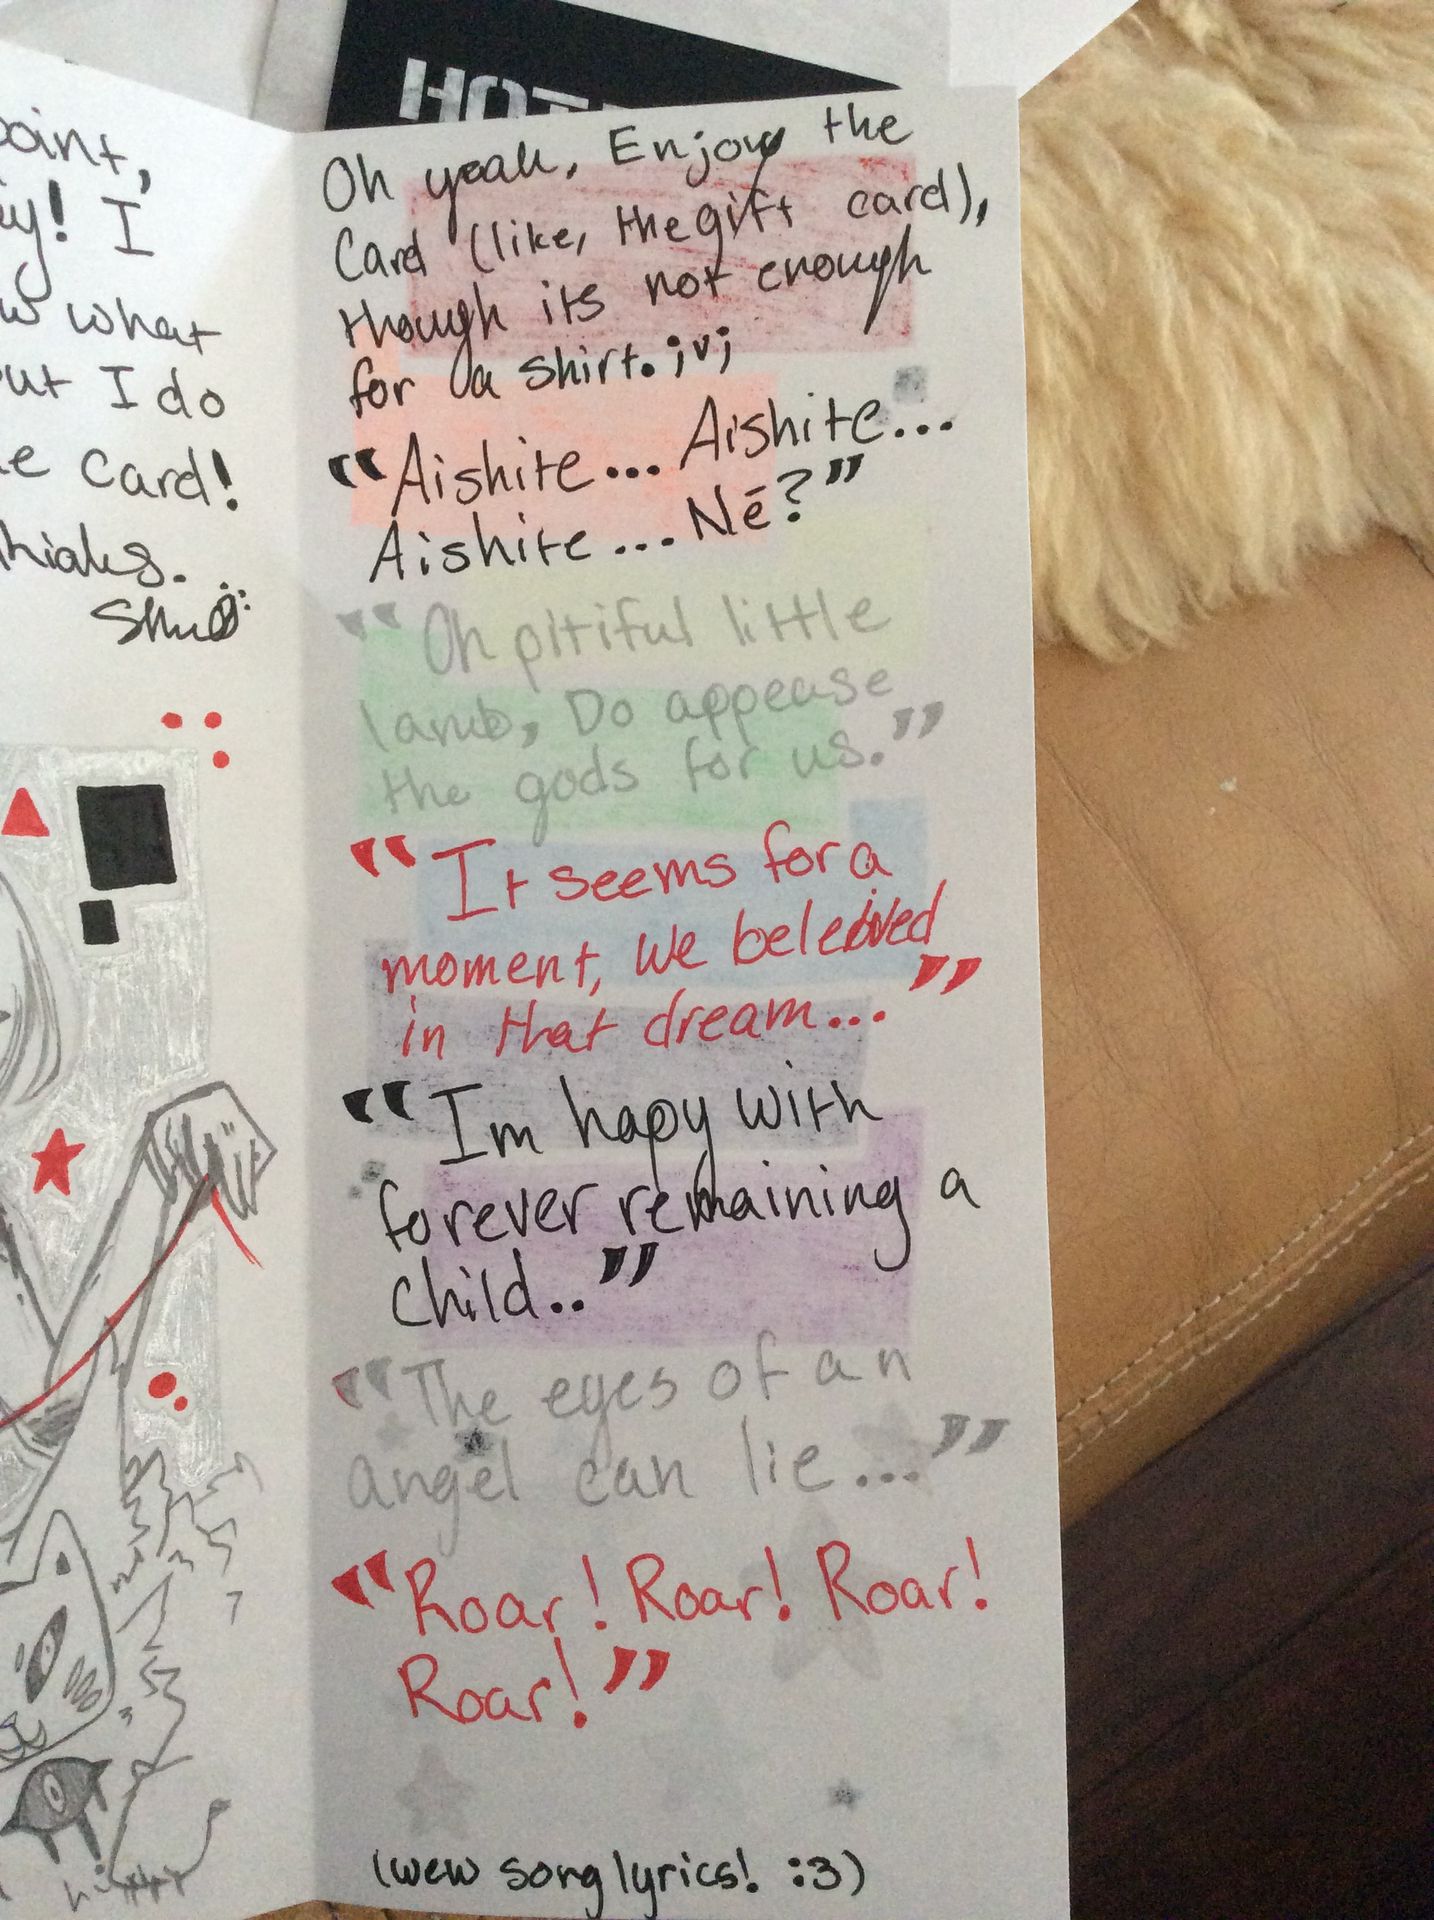 HOT
point,
I
what
I do
card!
Oh yeah, Enjoy the
Card (like, the gift card),
though its not enough
for a shirt. ;v;
"Aishite... Aishite...
Aishite... Nē?"
"Oh pitiful little
lamb, Do appease
the gods for us."
"It seems for a
moment, we beleived
in that dream..."
"Im hapy with
forever remaining a
child.."
"The eyes of an
angel can lie..."
"Roar! Roar! Roar!
Roar!"
(wew song lyrics! :3)